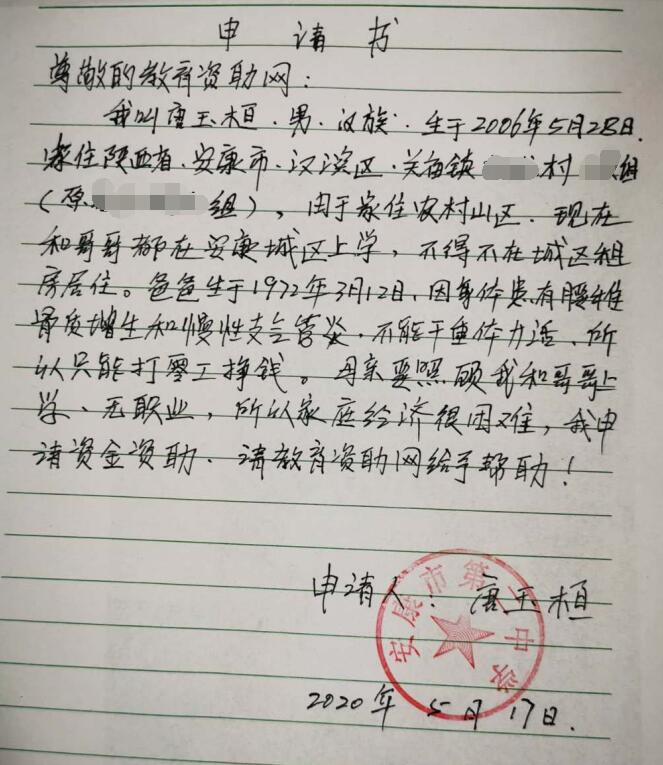 申请书
尊敬的教育资助网：
我叫唐玉桓、男、汉族、生于2006年5月28日.
家住陕西省、安康市、汉滨区、关庙镇 村 组
（原 组），由于家住农村山区、现在
和哥哥都在安康城区上学，不得不在城区租
房居住。爸爸生于1972年3月12日，因身体患有腰椎
骨质增生和慢性支气管炎、不能干重体力活、所
以只能打零工挣钱。母亲要照顾我和哥哥上
学、无职业，所以家庭经济很困难，我申
请资金资助、请教育资助网给予帮助！
申请人：唐玉桓
安康市第二中学
2020年5月17日.